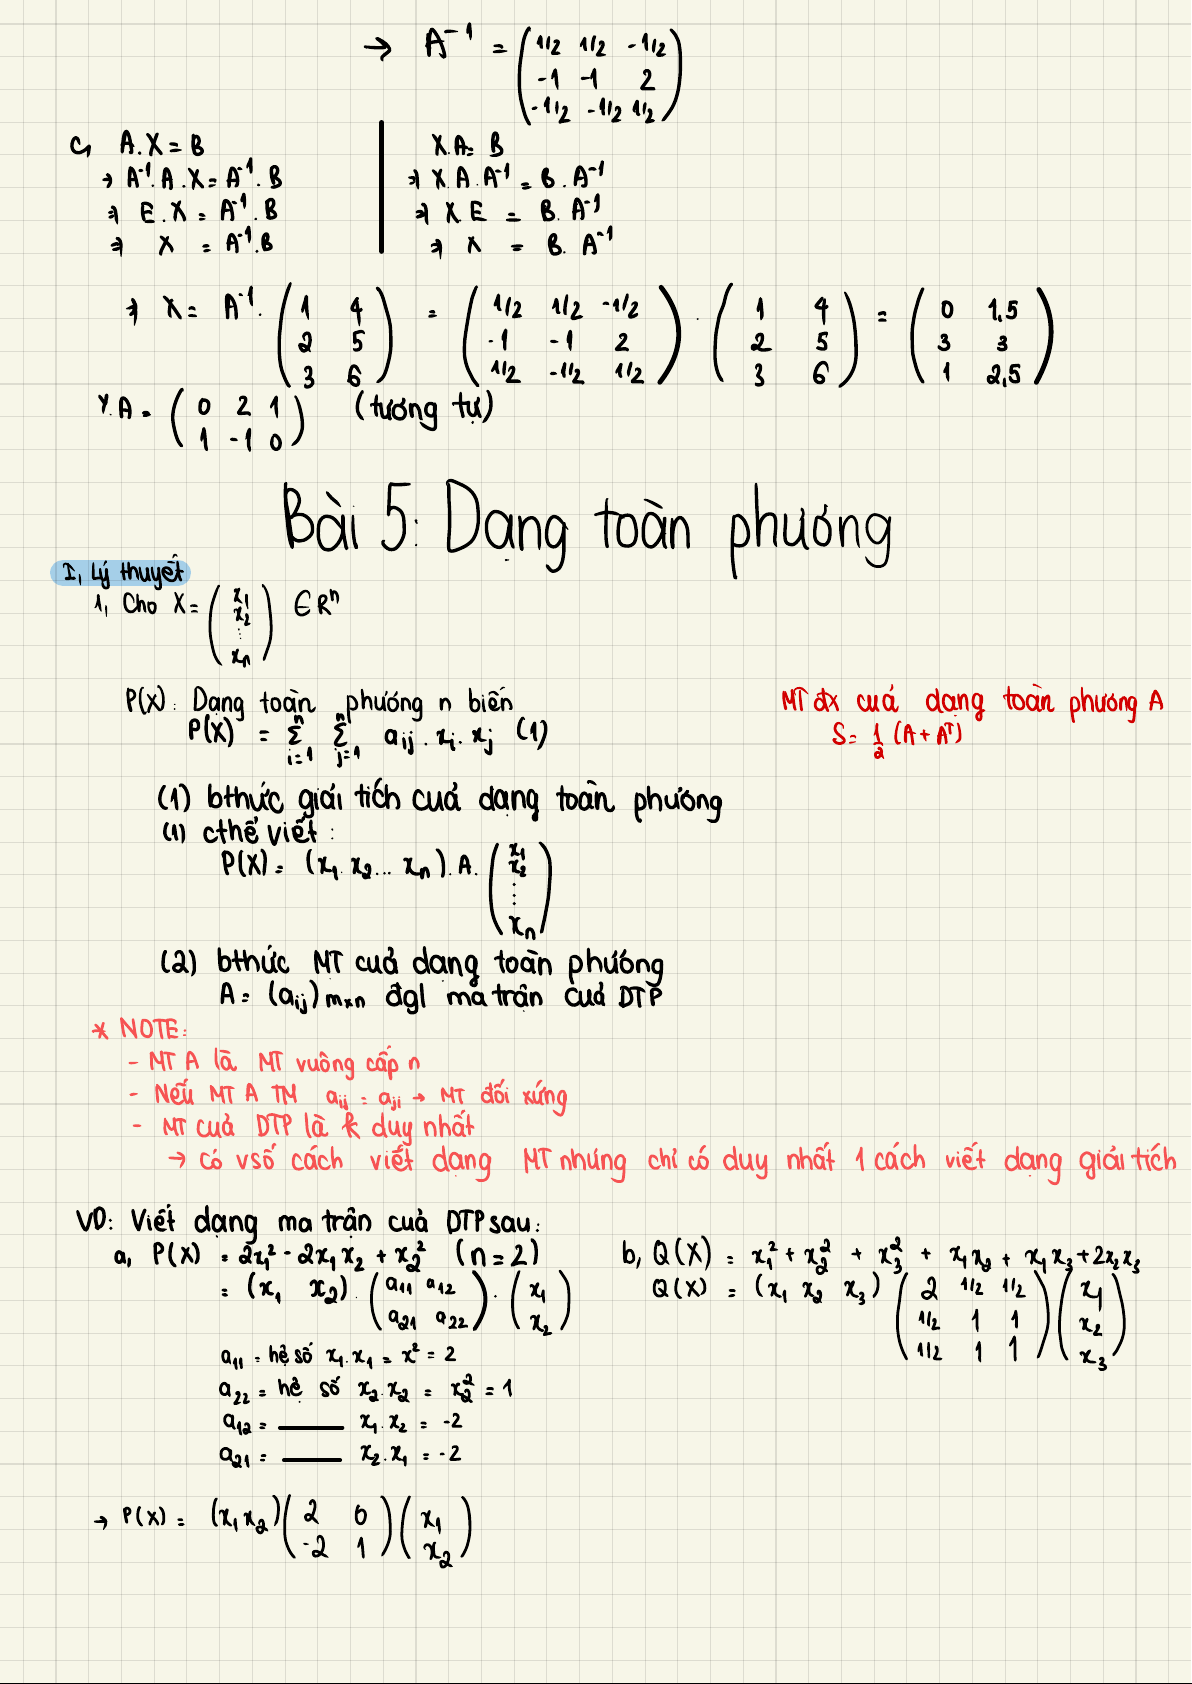 → A⁻¹ = (1/2 1/2 -1/2
-1 -1 2
-1/2 -1/2 1/2)
c, A.X = B | X.A = B
→ A⁻¹.A.X = A⁻¹.B | ⇒ X.A.A⁻¹ = B.A⁻¹
⇒ E.X = A⁻¹.B | ⇒ X.E = B.A⁻¹
⇒ X = A⁻¹.B | ⇒ X = B.A⁻¹
⇒ X = A⁻¹. (1 4 = (1/2 1/2 -1/2 . (1 4 = (0 1,5
2 5 -1 -1 2 2 5 3 3
3 6) 1/2 -1/2 1/2) 3 6) 1 2,5)
Y.A = (0 2 1 (tương tự)
1 -1 0)
Bài 5: Dạng toàn phương
I, Lý thuyết
1, Cho X = (x₁ x₂ ⋮ xₙ) ∈ Rⁿ
P(X): Dạng toàn phương n biến
P(X) = Σⁿᵢ₌₁ Σⁿⱼ₌₁ aᵢⱼ . xᵢ . xⱼ (1)
MT đx cuả dạng toàn phương A
S = 1/2 (A + Aᵀ)
(1) bthức giải tích cuả dạng toàn phương
(1) cthể viết:
P(X) = (x₁ x₂ ... xₙ).A. (x₁ x₂ ⋮ xₙ)
(2) bthức MT cuả dạng toàn phương
A = (aᵢⱼ)ₘₓₙ đgl ma trận cuả DTP
* NOTE:
- MT A là MT vuông cấp n
- Nếu MT A TM aᵢⱼ = aⱼᵢ → MT đối xứng
- MT cuả DTP là k duy nhất
→ có vsố cách viết dạng MT nhưng chỉ có duy nhất 1 cách viết dạng giải tích
VD: Viết dạng ma trận cuả DTP sau:
a, P(X) = 2x₁² - 2x₁x₂ + x₂² (n = 2)
= (x₁ x₂) . (a₁₁ a₁₂ . (x₁
a₂₁ a₂₂) x₂)
a₁₁ = hệ số x₁.x₁ = x² = 2
a₂₂ = hệ số x₂.x₂ = x₂² = 1
a₁₂ = —— x₁.x₂ = -2
a₂₁ = —— x₂.x₁ = -2
→ P(X) = (x₁ x₂) (2 0 (x₁
-2 1) x₂)
b, Q(X) = x₁² + x₂² + x₃² + x₁x₂ + x₁x₃ + 2x₂x₃
Q(X) = (x₁ x₂ x₃) (2 1/2 1/2 (x₁
1/2 1 1 x₂
1/2 1 1) x₃)